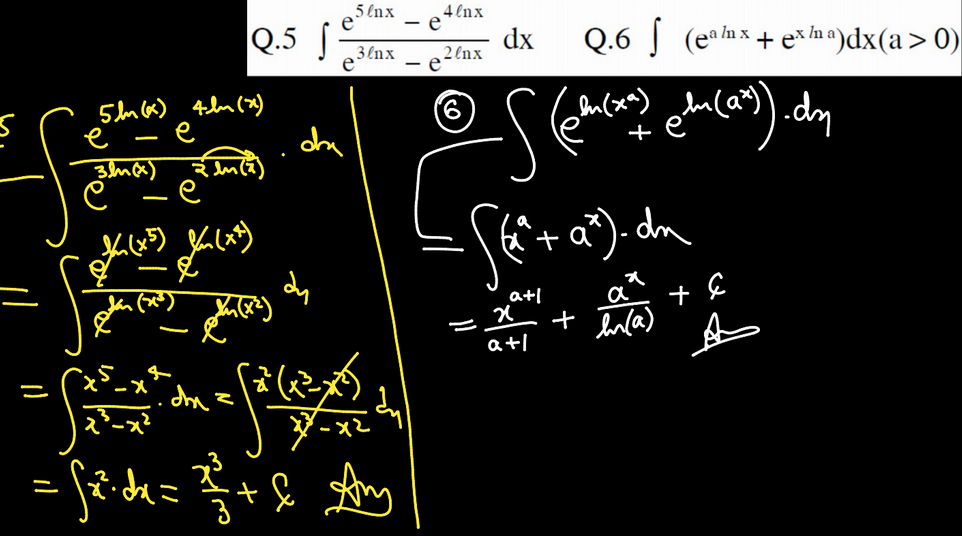 Q.5 ∫ (e^{5ℓnx} − e^{4ℓnx})/(e^{3ℓnx} − e^{2ℓnx}) dx Q.6 ∫ (e^{a ln x} + e^{x ln a})dx(a > 0)
5 ∫ (e^{5ln(x)} − e^{4ln(x)})/(e^{3ln(x)} − e^{2ln(x)}) . dx
= ∫ (e^{ln(x^5)} − e^{ln(x^4)})/(e^{ln(x^3)} − e^{ln(x^2)}) dx
= ∫ (x^5 − x^4)/(x^3 − x^2) . dx = ∫ x^2(x^3 − x^2)/(x^3 − x^2) dx
= ∫ x^2 . dx = x^3/3 + C Ans
6 ∫ (e^{ln(x^a)} + e^{ln(a^x)}) . dx
= ∫ (x^a + a^x) . dx
= x^{a+1}/(a+1) + a^x/ln(a) + C